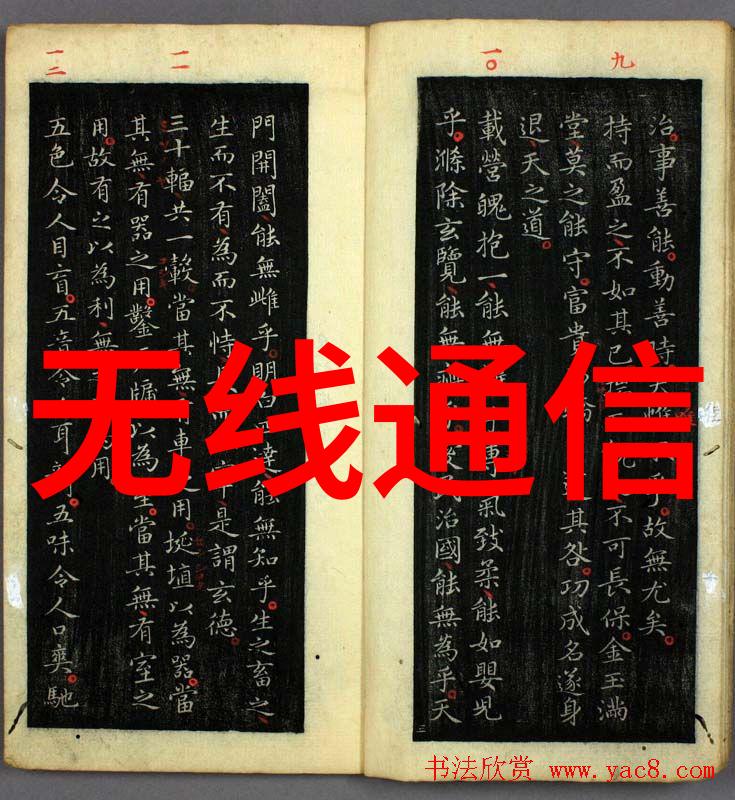 九
一〇
治事善能動善時夫惟 故無尤矣
持而盈之不如其已 不可長保金玉滿
堂莫之能守富貴 其咎功成名遂身
退天之道
載營魄抱一能無 專氣致柔能如嬰兒
乎滌除玄覽能無 民治國能無為乎天
一一
一二
門開闔能無雌乎明白 達能無知乎生之畜之
生而不有為而不恃 而 宰是謂玄德
三十輻共一轂當其無有車之用埏埴以為器當
其無有器之用鑿 牖以為室當其無有室之
用故有之以為利無 用
五色令人目盲五音令人耳 五味令人口爽馳
无线通信
书法欣赏 www.yac8.com